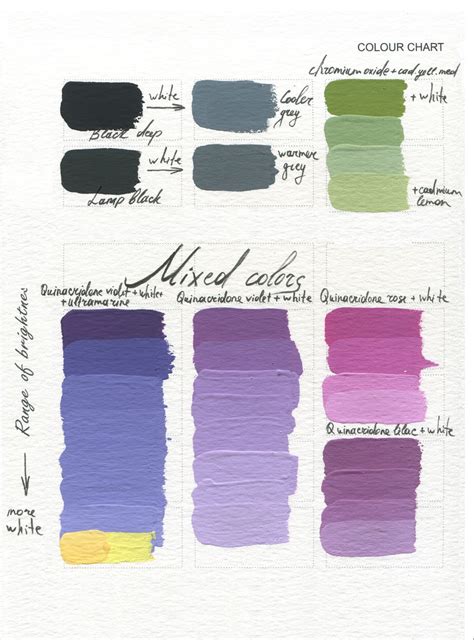 COLOUR CHART
chromium oxide + cad. yell. med
white
Cooler
grey
+ white
Black deep
white
warmer
grey
Lamp Black
+ cadmium
lemon
Mixed colors
Quinacridone violet + white +
+ ultramarine
Quinacridone violet + white
Quinacridone rose + white
Range of brightnes
Quinacridone lilac + white
more
white